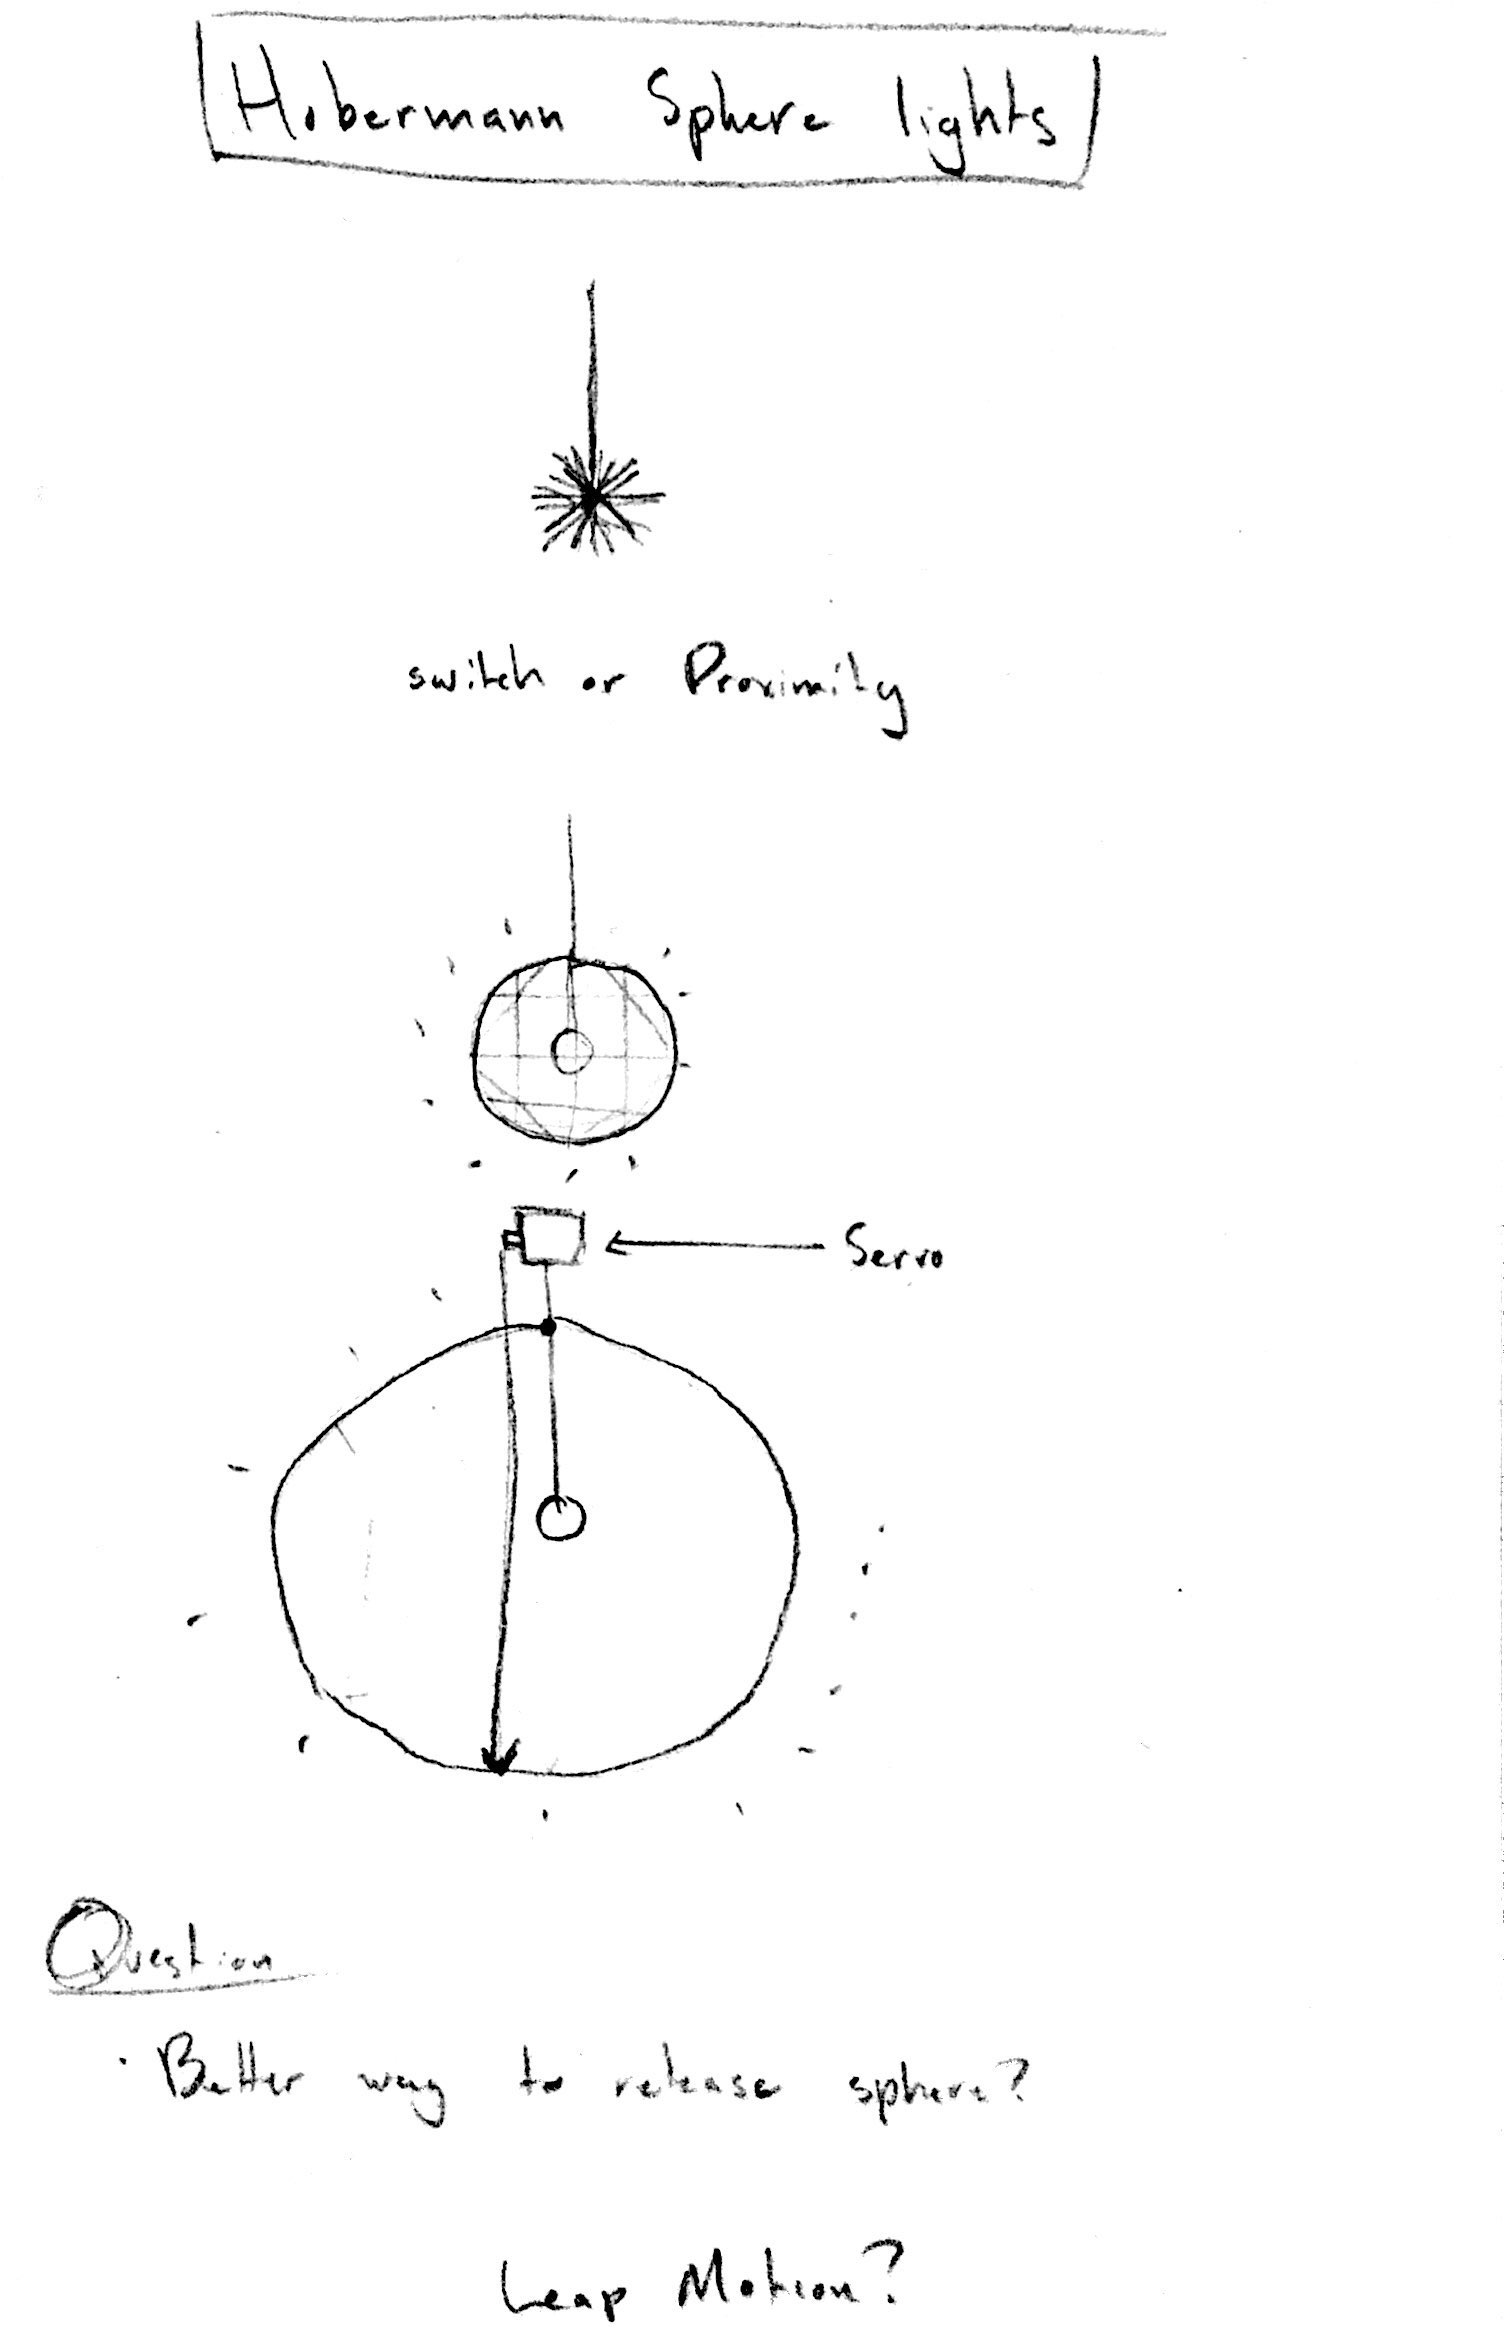 Hobermann Sphere lights
switch or Proximity
Servo
Question
· Better way to release sphere?
Leap Motion?